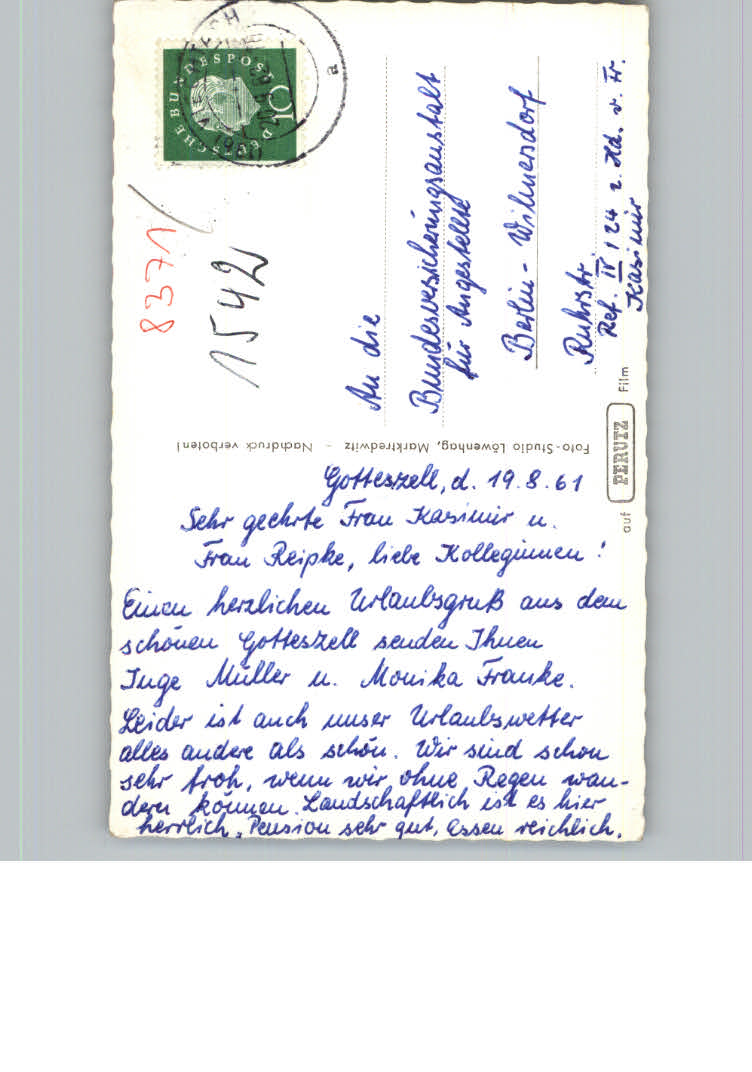 Gotteszell, d. 19.8.61
Sehr geehrte Frau Kasimir u.
Frau Reipke, liebe Kolleginnen!
Einen herzlichen Urlaubsgruß aus dem
schönen Gotteszell senden Ihnen
Inge Müller u. Monika Franke.
Leider ist auch unser Urlaubswetter
alles andere als schön. Wir sind schon
sehr froh, wenn wir ohne Regen wan-
dern können. Landschaftlich ist es hier
herrlich, Pension sehr gut, Essen reichlich.
An die
Bundesversicherungsanstalt
für Angestellte
Berlin-Wilmersdorf
Ruhrstr.
Ref. IV 124 z. Hd. v. Fr.
Kasimir
8371
1542
DEUTSCHE BUNDESPOST
10
Foto-Studio Löwenhag, Marktredwitz - Nachdruck verboten!
auf PERUTZ Film